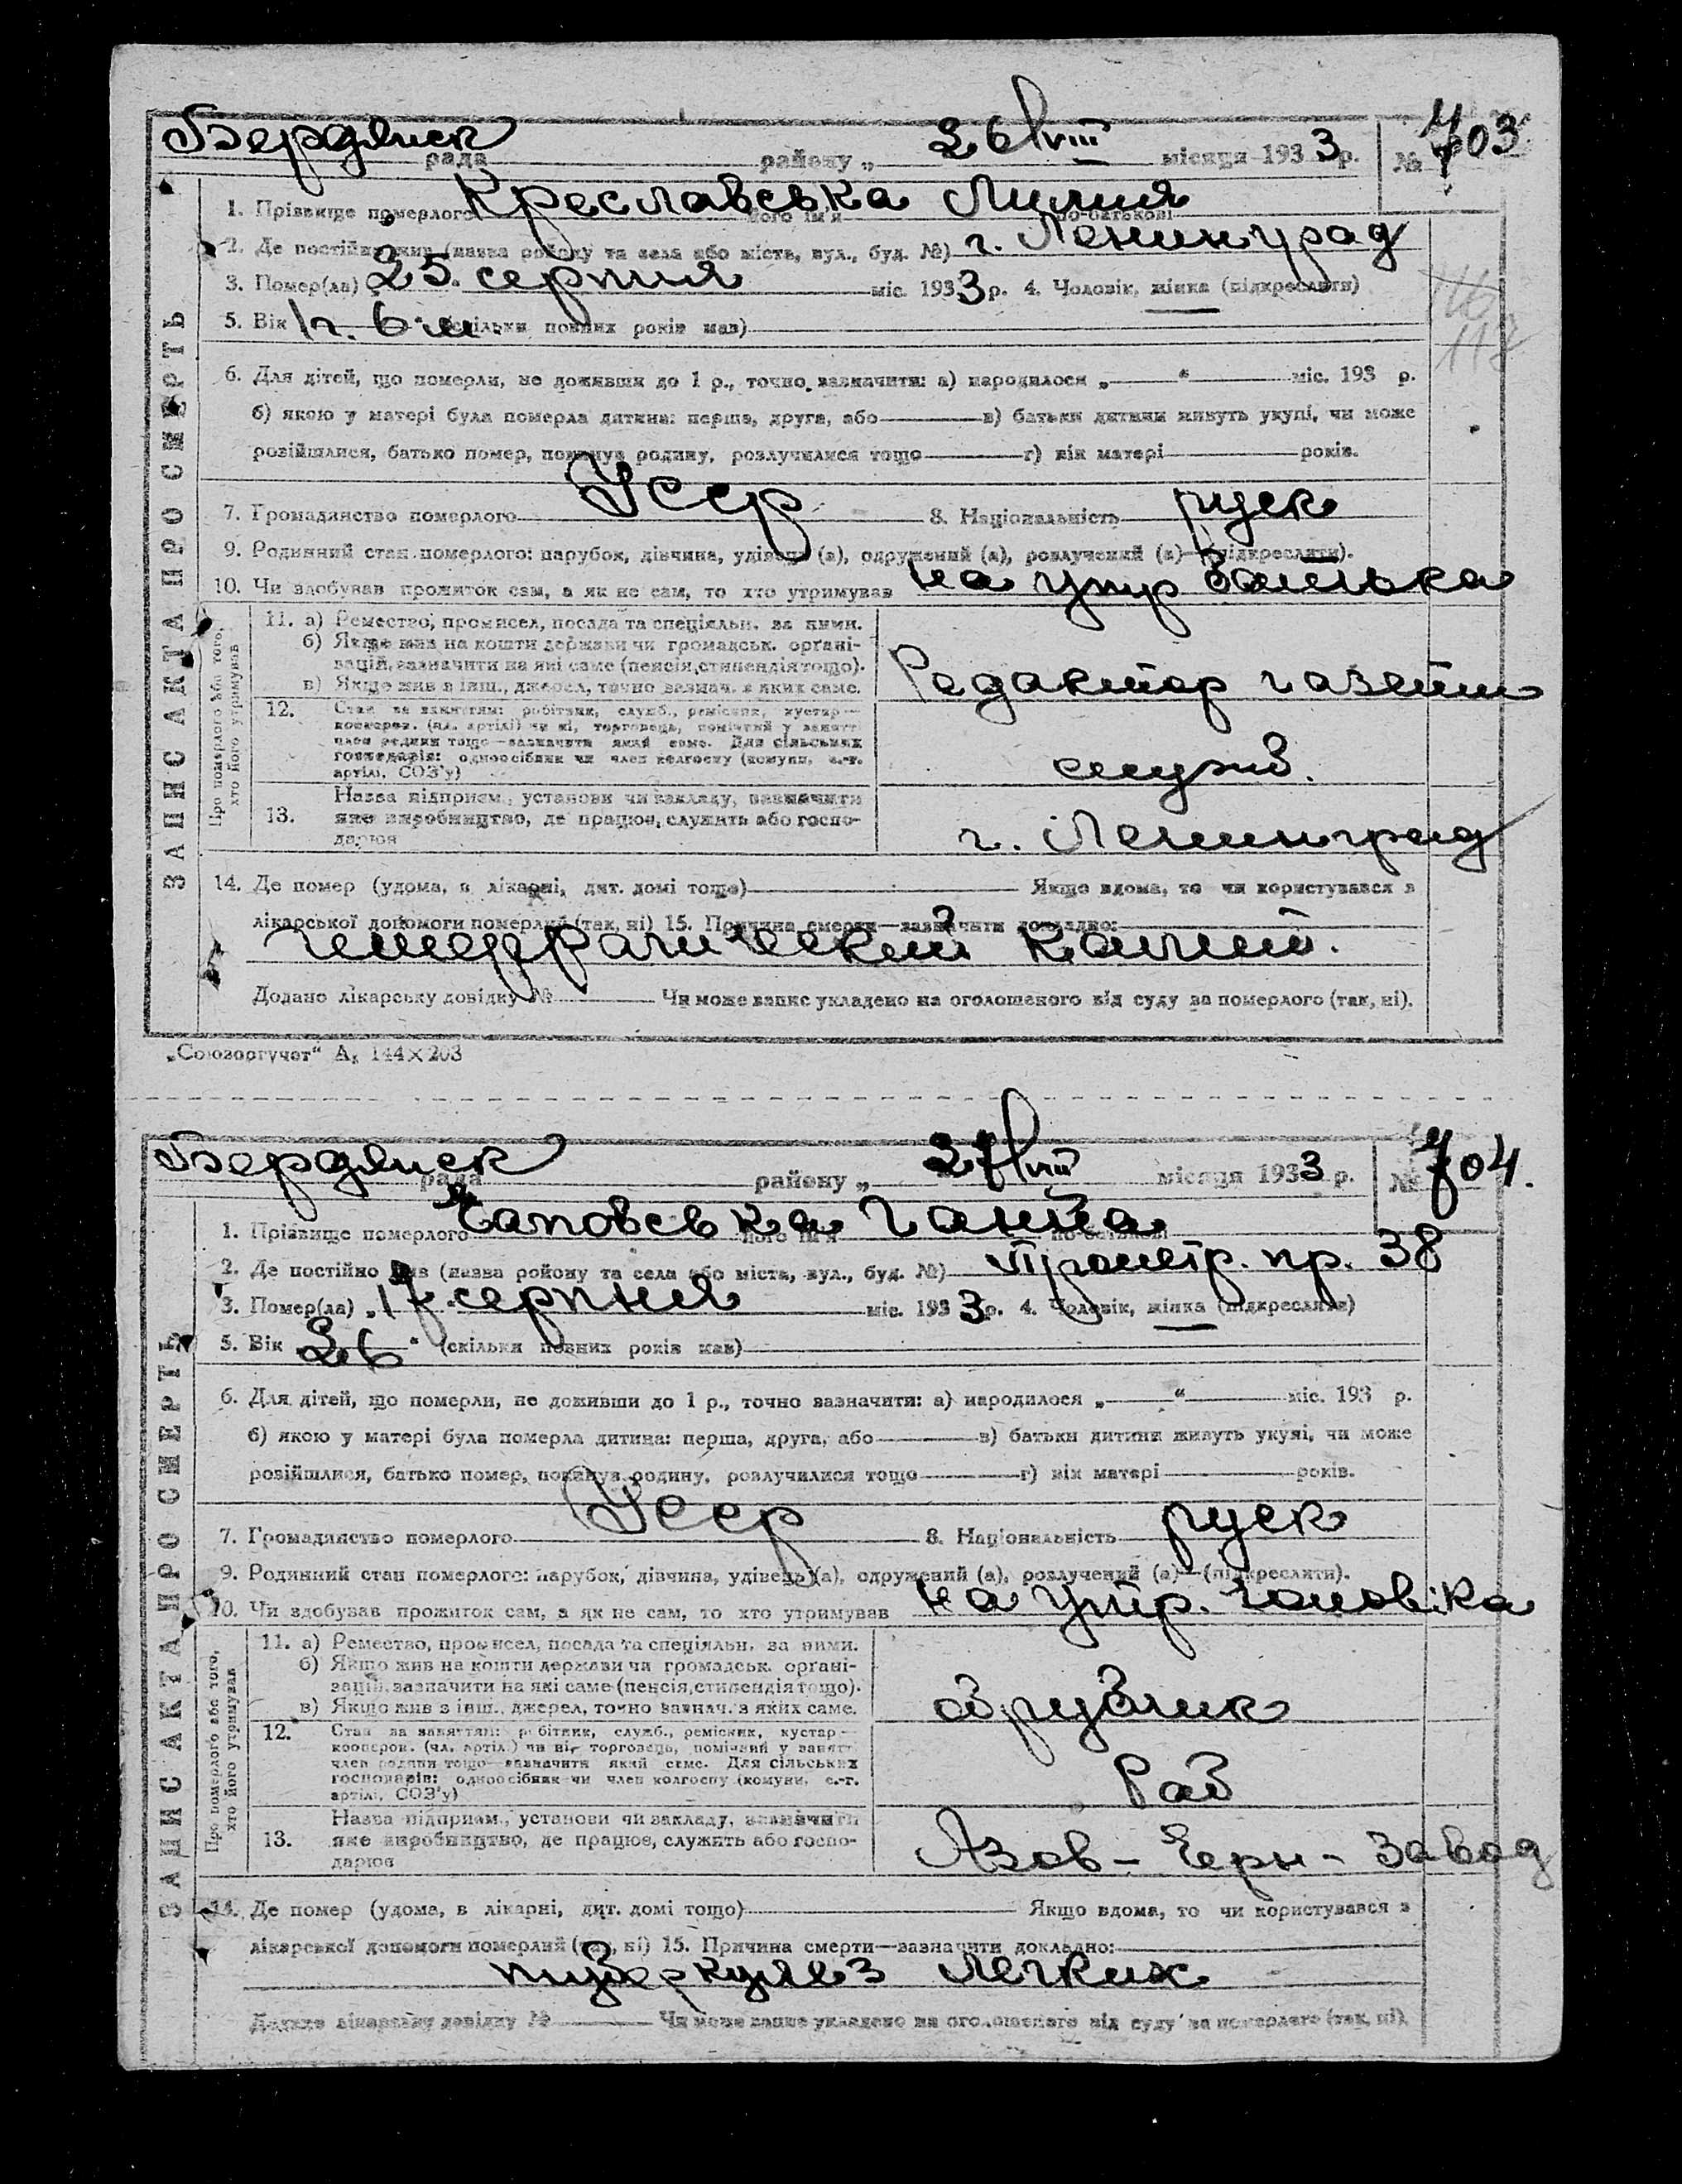 Бердянск рада району „ 26/VIII місяця 1933 р. № 703
1. Прізвище померлого Креславська його ім'я Лилия по-батькові
2. Де постійно жив (назва району та села або міста, вул., буд. №) г. Ленинград
3. Помер(ла) „25 серпня міс. 1933 р. 4. Чоловік, жінка (підкреслити)
5. Вік 1 г. 6 м. (скільки повних років мав)
6. Для дітей, що померли, не доживши до 1 р., точно зазначити: а) народилося „ “ міс. 193 р.
б) якою у матері була померла дитина: перша, друга, або в) батьки дитини живуть укупі, чи може
розійшлися, батько помер, покинув родину, розлучилися тощо г) вік матері років.
7. Громадянство померлого Усср 8. Національність руск
9. Родинний стан померлого: парубок, дівчина, удівець (а), одружений (а), розлучений (а)—(підкреслити).
10. Чи здобував прожиток сам, а як не сам, то хто утримував на утр батька
ЗАПИС АКТА ПРО СМЕРТЬ
Про померлого або того, хто його утримував
11. а) Ремество, промисел, посада та спеціяльн. за ними.
б) Якщо жив на кошти держави чи громадськ. органі-
зацій, зазначити на які саме (пенсія, стипендія тощо).
в) Якщо жив з інш. джерел, точно зазнач. з яких саме.
Редактор газети
12. Стан за заняттям: робітник, служб., ремісник, кустар—
кооперов. (чл. артілі) чи ні, торговець, помічний у занятт
член родини тощо—зазначити який саме. Для сільських
господарів: одноосібник чи член колгоспу (комуни, с.-г.
артілі, СОЗ'у)
служб.
13. Назва підприєм., установи чи закладу, зазначити
яке виробництво, де працює, служить або госпо-
дарює
г. Ленинград
14. Де помер (удома, в лікарні, дит. домі тощо) Якщо вдома, то чи користувався з
лікарської допомоги померлий (так, ні) 15. Причина смерти—зазначити докладно:
колит.
Додано лікарську довідку № Чи може запис укладено на оголошеного від суду за померлого (так, ні).
„Союзоргучет“ А₅ 144×203
Бердянск рада району „ 27/VIII місяця 1933 р. № 704.
1. Прізвище померлого його ім'я Ганна по-батькові
2. Де постійно жив (назва району та села або міста, вул., буд. №) Пролетр. пр. 38
3. Помер(ла) „17 серпня міс. 1933 р. 4. Чоловік, жінка (підкреслити)
5. Вік 26 “ (скільки повних років мав)
6. Для дітей, що померли, не доживши до 1 р., точно зазначити: а) народилося „ “ міс. 193 р.
б) якою у матері була померла дитина: перша, друга, або в) батьки дитини живуть укупі, чи може
розійшлися, батько помер, покинув родину, розлучилися тощо г) вік матері років.
7. Громадянство померлого Усср 8. Національність руск
9. Родинний стан померлого: парубок, дівчина, удівець (а), одружений (а), розлучений (а)—(підкреслити).
10. Чи здобував прожиток сам, а як не сам, то хто утримував на утр. чоловіка
ЗАПИС АКТА ПРО СМЕРТЬ
Про померлого або того, хто його утримував
11. а) Ремество, промисел, посада та спеціяльн. за ними.
б) Якщо жив на кошти держави чи громадськ. органі-
зацій, зазначити на які саме (пенсія, стипендія тощо).
в) Якщо жив з інш. джерел, точно зазнач. з яких саме.
12. Стан за заняттям: робітник, служб., ремісник, кустар—
кооперов. (чл. артілі) чи ні, торговець, помічний у занятт
член родини тощо—зазначити який саме. Для сільських
господарів: одноосібник чи член колгоспу (комуни, с.-г.
артілі, СОЗ'у)
Раб
13. Назва підприєм., установи чи закладу, зазначити
яке виробництво, де працює, служить або госпо-
дарює
Азов-Черн-Завод
14. Де помер (удома, в лікарні, дит. домі тощо) Якщо вдома, то чи користувався з
лікарської допомоги померлий (так, ні) 15. Причина смерти—зазначити докладно:
туберкульз легких
Додано лікарську довідку № Чи може запис укладено на оголошеного від суду за померлого (так, ні).